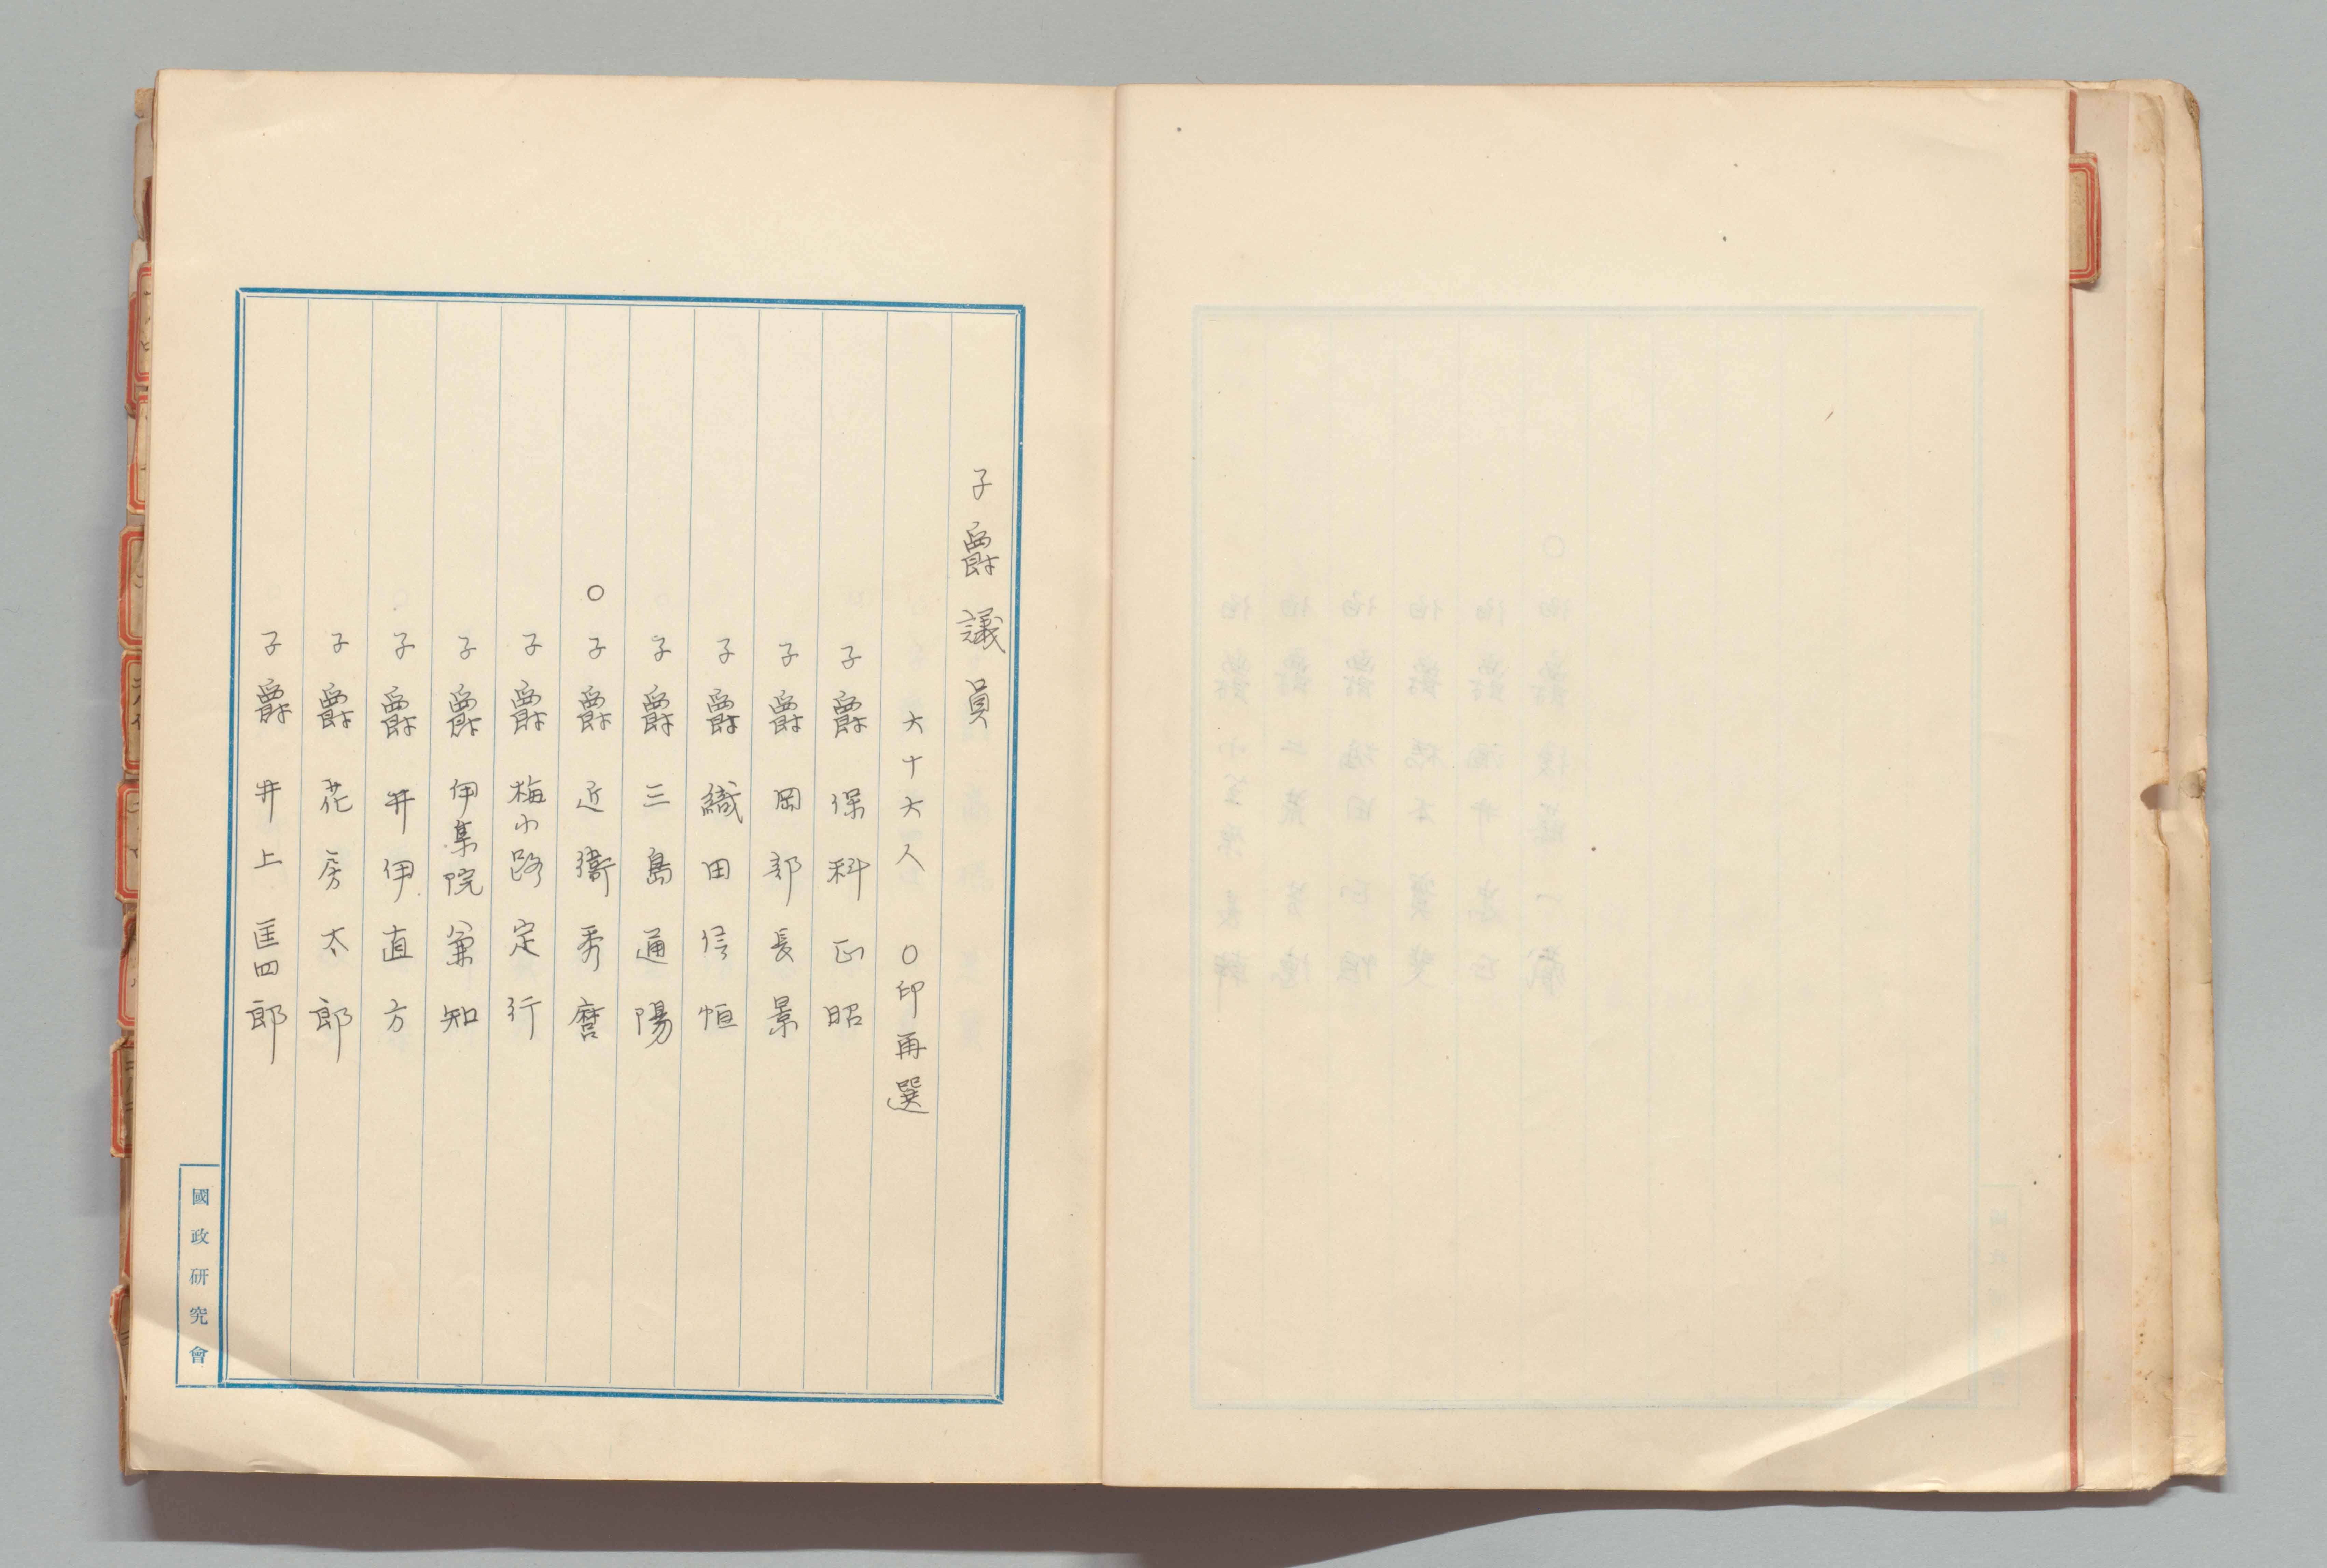 子爵議員
六十六人　〇印再選
子爵　保科正昭
子爵　岡部長景
子爵　織田信恒
子爵　三島通陽
〇子爵　近衞秀麿
子爵　梅小路定行
子爵　伊集院兼知
子爵　井伊直方
子爵　花房太郎
子爵　井上匡四郎
國政研究會